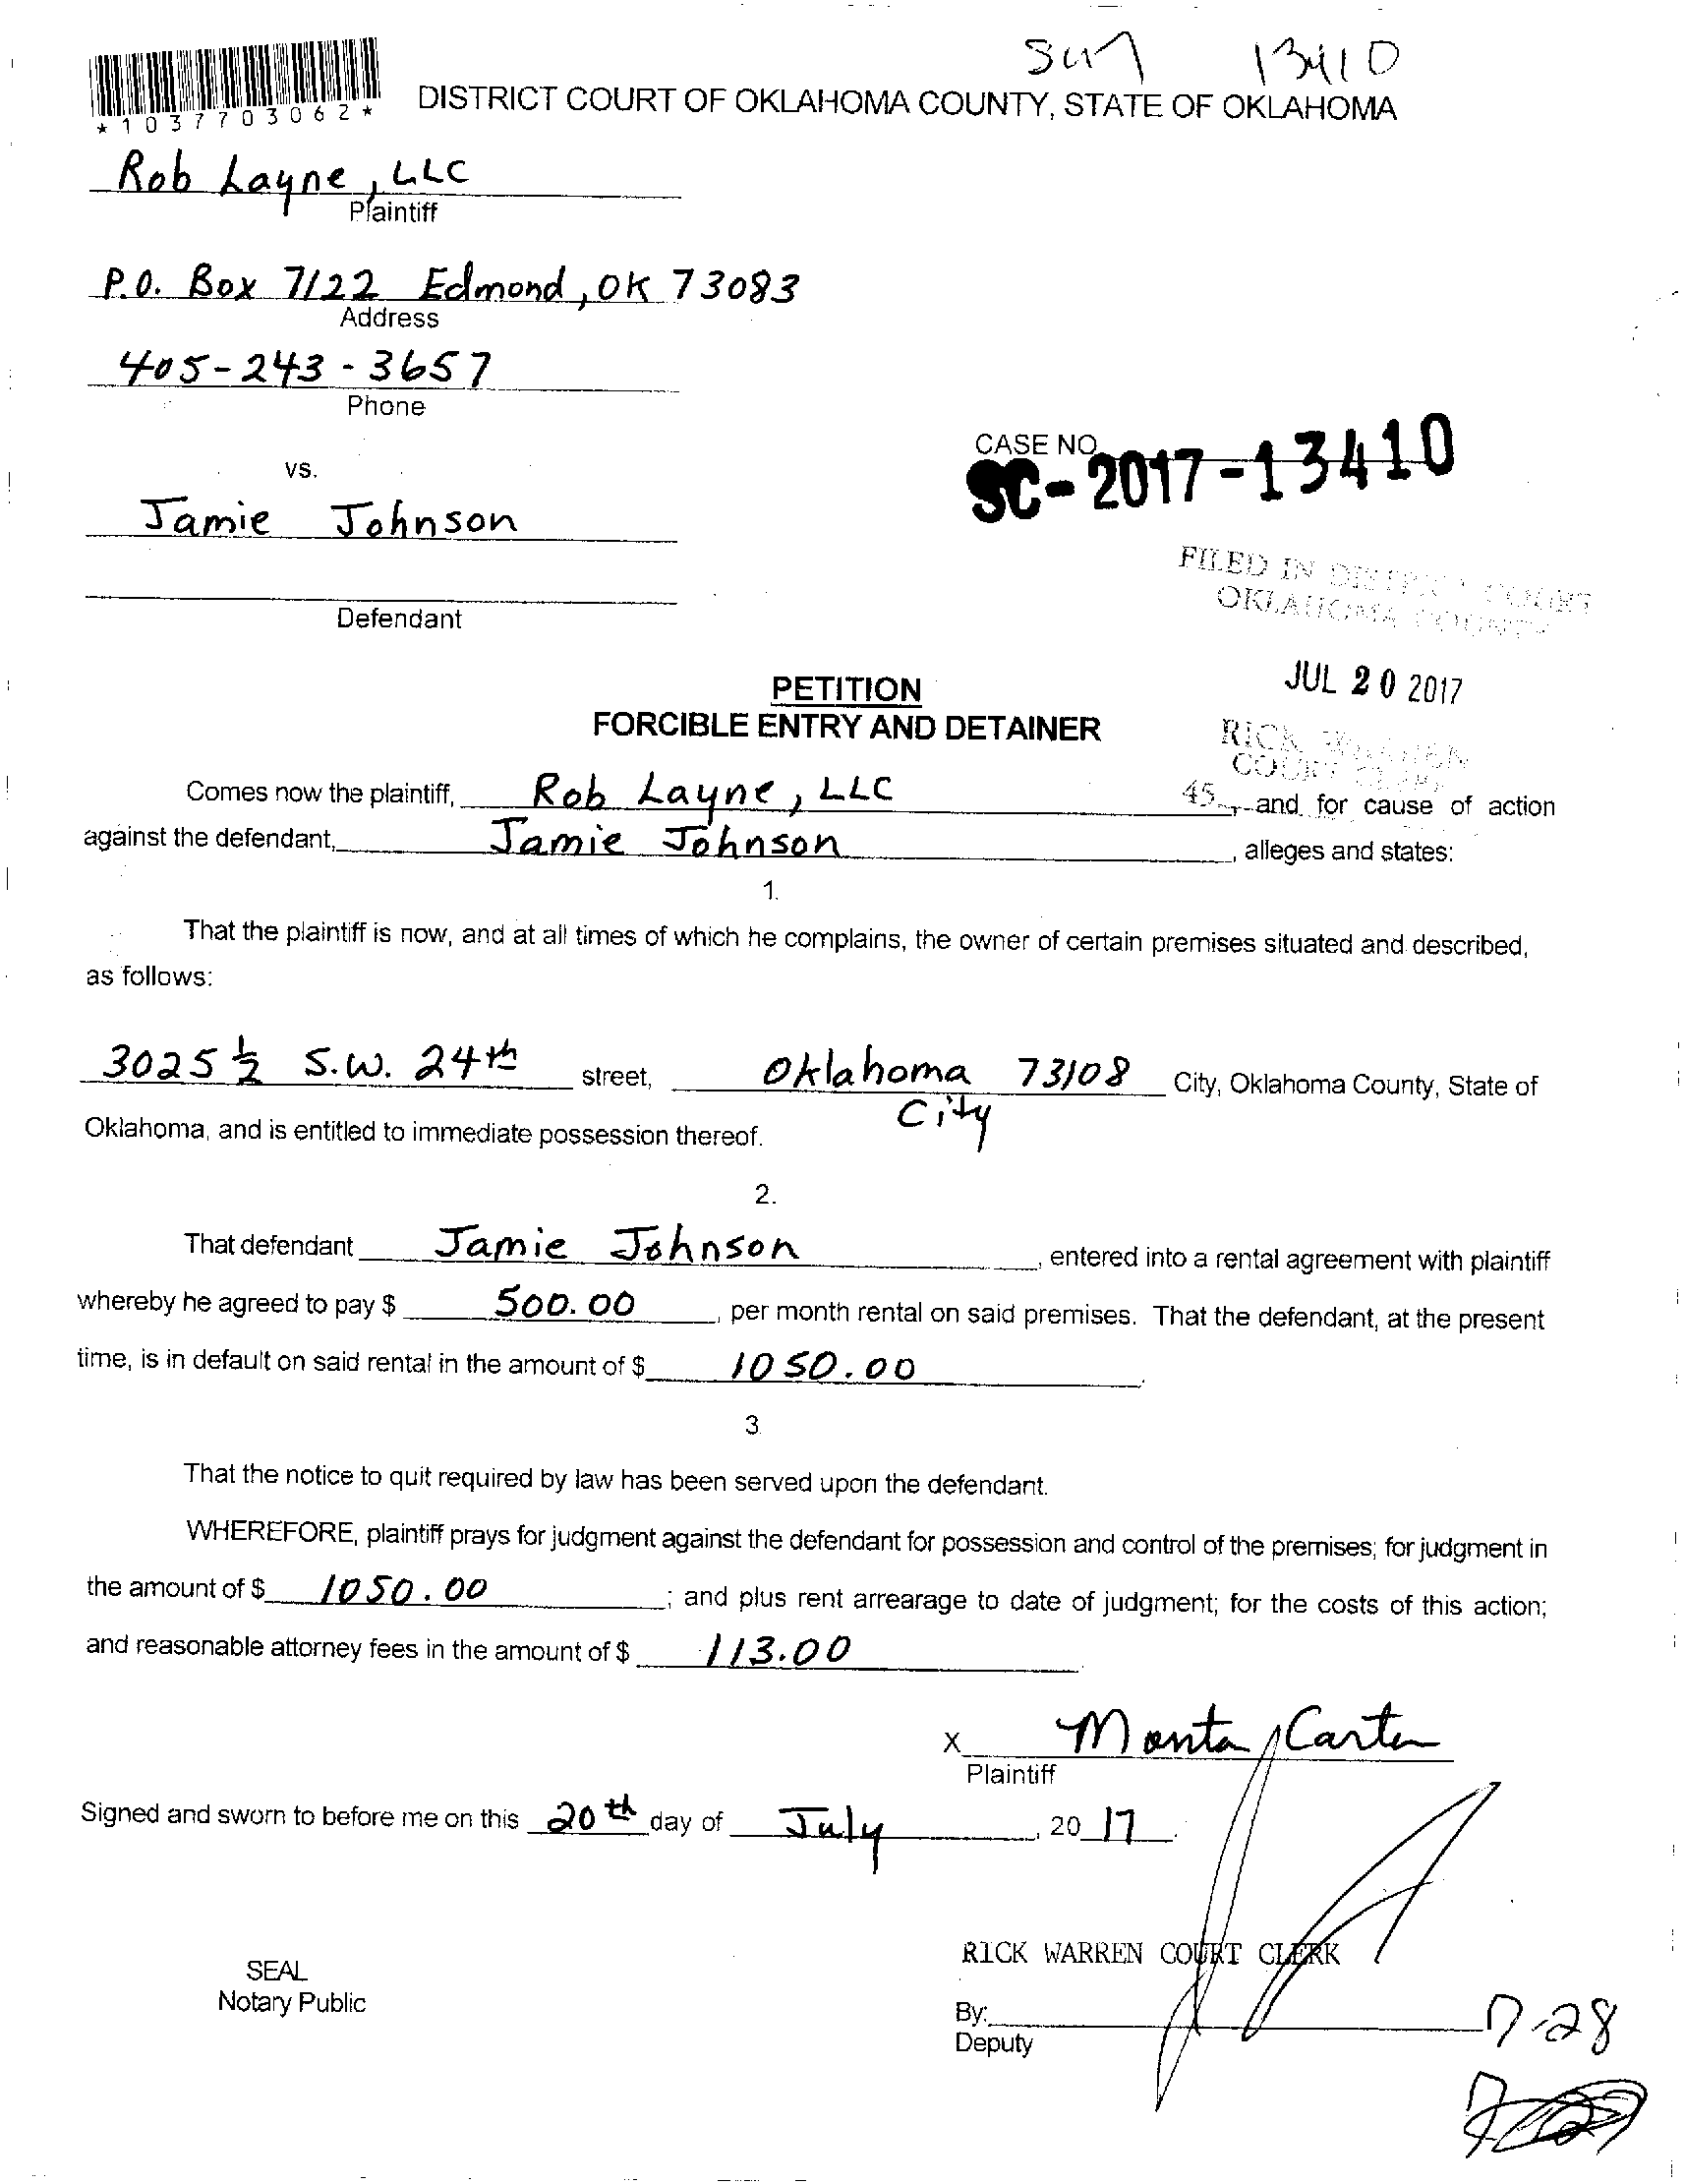 13410
*1037703062*
DISTRICT COURT OF OKLAHOMA COUNTY, STATE OF OKLAHOMA
Rob Layne, LLC
Plaintiff
P.O. Box 7122 Edmond, OK 73083
Address
405-243-3657
Phone
CASE NO.
SC-2017-13410
vs.
Jamie Johnson
FILED IN DISTRICT COURT
OKLAHOMA COUNTY
Defendant
JUL 20 2017
PETITION
FORCIBLE ENTRY AND DETAINER
RICK WARREN
COURT CLERK
Comes now the plaintiff, Rob Layne, LLC 45 , and for cause of action
against the defendant, Jamie Johnson , alleges and states:
1.
That the plaintiff is now, and at all times of which he complains, the owner of certain premises situated and described,
as follows:
3025 ½ S.W. 24th street, Oklahoma 73108 City, Oklahoma County, State of
City
Oklahoma, and is entitled to immediate possession thereof.
2.
That defendant Jamie Johnson , entered into a rental agreement with plaintiff
whereby he agreed to pay $ 500.00 , per month rental on said premises. That the defendant, at the present
time, is in default on said rental in the amount of $ 1050.00 .
3.
That the notice to quit required by law has been served upon the defendant.
WHEREFORE, plaintiff prays for judgment against the defendant for possession and control of the premises; for judgment in
the amount of $ 1050.00 ; and plus rent arrearage to date of judgment; for the costs of this action;
and reasonable attorney fees in the amount of $ 113.00 .
X Monta Carter
Plaintiff
Signed and sworn to before me on this 20th day of July , 20 17 .
RICK WARREN COURT CLERK
SEAL
Notary Public
By:
Deputy
7-28